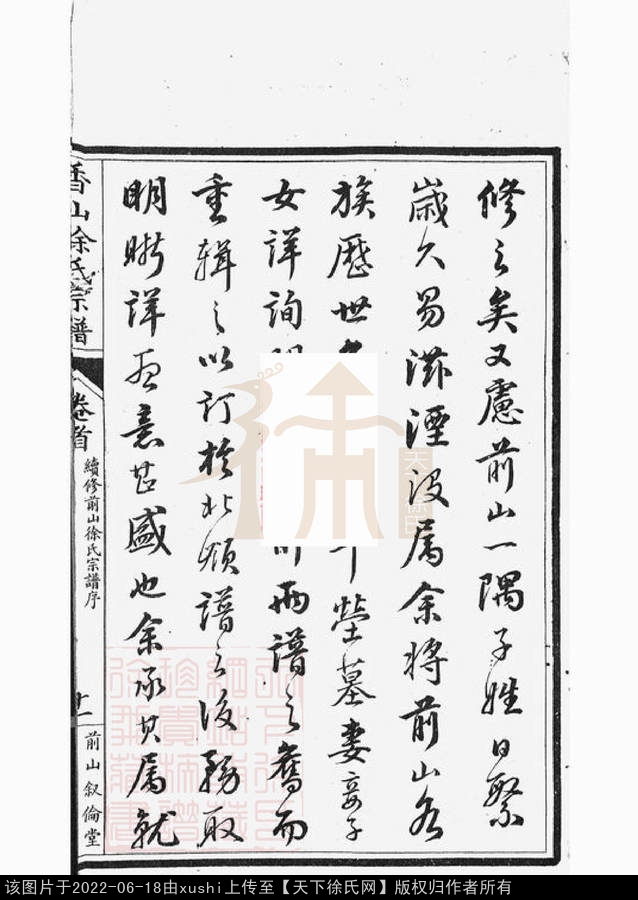 修之矣又慮前山一隅子姓日繁
歲久易滋湮沒属余將前山各
族歷世
墓妻妾子
女詳詢
兩譜之舊而
重輯之以訂於北嶺譜之後務取
明晰詳
意甚盛也余承其属就
香山徐氏宗譜
卷首
續修前山徐氏宗譜序
十一
前山叙倫堂
该图片于2022-06-18由xushi上传至【天下徐氏网】版权归作者所有